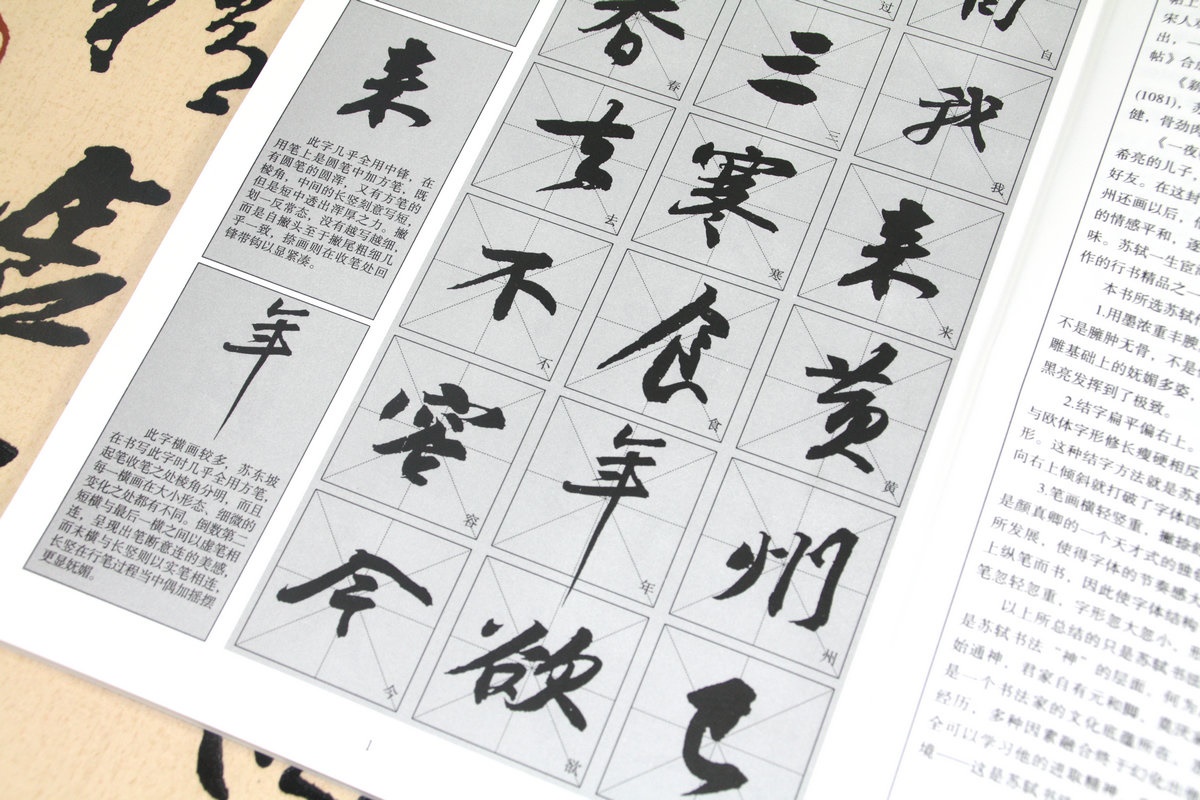 来
此字几乎全用中锋，在
用笔上是圆笔中加方笔，既
有圆笔的圆浑，又有方笔的
棱角，中间的长竖刻意写短，
但是短中透出浑厚之力。撇
划一反常态，没有越写越细，
而是自撇头至于撇尾粗细几
乎一致，捺画则在收笔处回
锋带钩以显紧凑。
年
此字横画较多，苏东坡
在书写此字时几乎全用方笔，
起笔收笔之处棱角分明，而且
每一横画在大小形态、细微的
变化之处都有不同。倒数第二
短横与最后一横之间以虚笔相
连，呈现出笔断意连的美感，
而末横与长竖则以实笔相连，
长竖在行笔过程当中偶加摇摆
更显妩媚。
自
我 我
来 来
黄 黄
州 州
已
过
三 三
寒 寒
食 食
年 年
欲 欲
春 春
去 去
不 不
容 容
今 今
1
帖上
宋人
出，一
帖》合
(1081)，苏
健，骨劲
《一夜
希亮的儿子，
好友。在这封
州还画以后，
的情感平和，
味。苏轼一生宦
作的行书精品之一
本书所选苏轼
1.用墨浓重丰腴
不是臃肿无骨，不是
雕基础上的妩媚多姿
黑亮发挥到了极致。
2.结字扁平偏右上。
与欧体字形修长瘦硬相
形。这种结字方法就是苏
向右上倾斜就打破了字体
3.笔画横轻竖重，撇捺
是颜真卿的一个天才式的
所发展，使得字体的节奏感
上纵笔而书，因此使字体结构
笔忽轻忽重，字形忽大忽小，
以上所总结的只是苏轼书
是苏轼书法“神”的层面，何
始通神，君家自有元和脚，莫
是一个书法家的文化底蕴所在，
经历，多种因素融合终于幻化出
全可以学习他的进取精神，
境——这是苏轼书